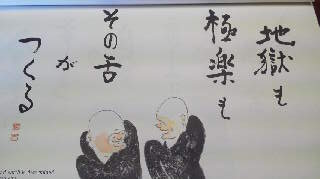 地獄も
極楽も
その舌
が
つくる